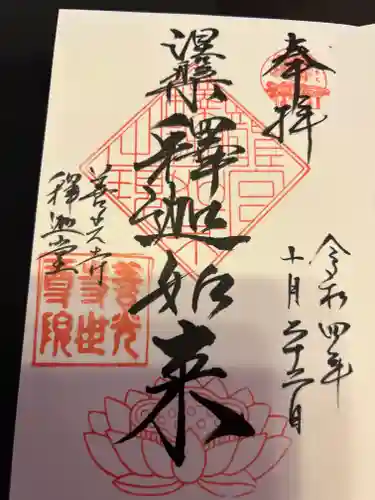 奉拝
令和四年
十月二十二日
涅槃
釋迦如来
善光寺
釋迦堂
善光
寺世
尊院